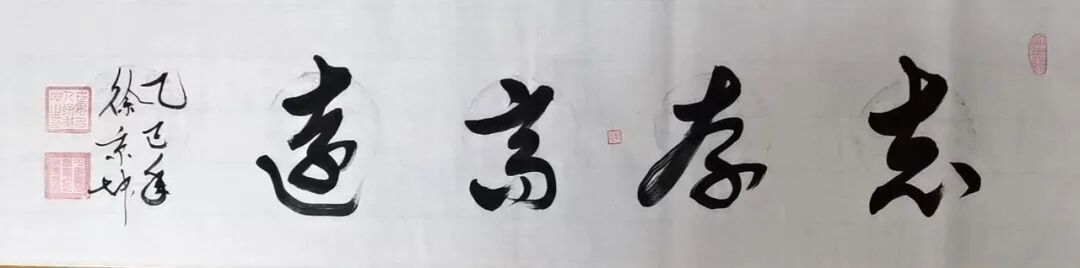 志存高远
乙巳年
徐京坤